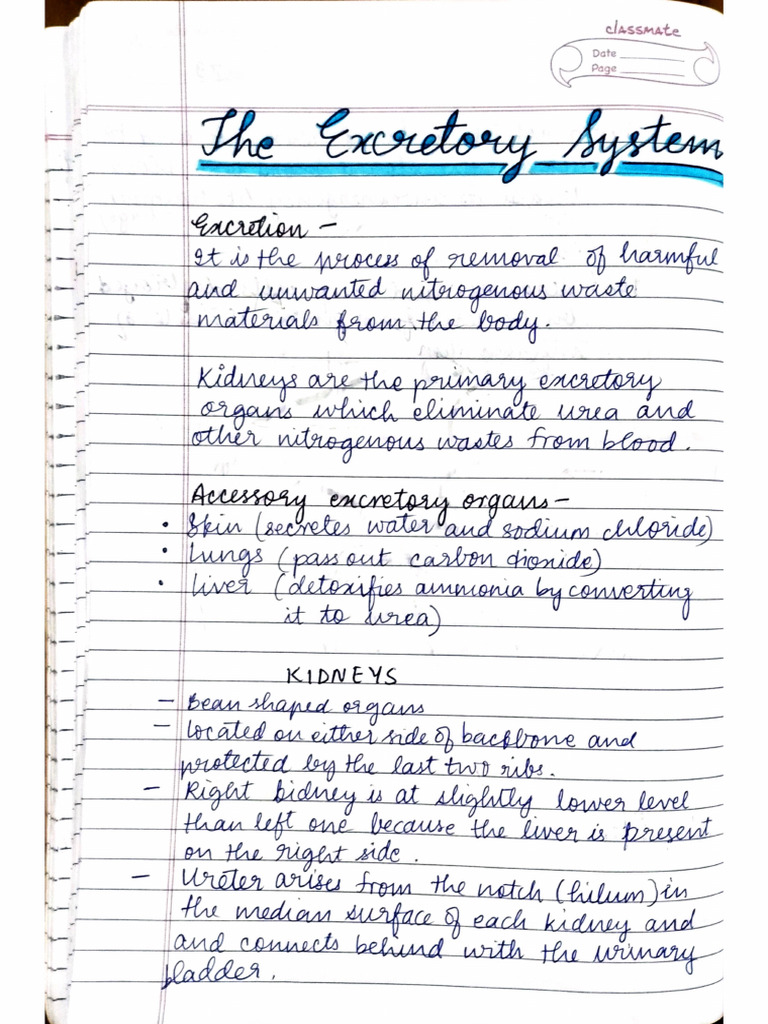 classmate
Date
Page
The Excretory System
Excretion -
It is the process of removal of harmful
and unwanted nitrogenous waste
materials from the body.
Kidneys are the primary excretory
organs which eliminate urea and
other nitrogenous wastes from blood.
Accessory excretory organs-
• Skin (secretes water and sodium chloride)
• Lungs (pass out carbon dioxide)
• Liver (detoxifies ammonia by converting
it to urea)
KIDNEYS
- Bean shaped organs
- Located on either side of backbone and
protected by the last two ribs.
- Right kidney is at slightly lower level
than left one because the liver is present
on the right side.
- Ureter arises from the notch (hilum) in
the median surface of each kidney and
and connects behind with the urinary
bladder.